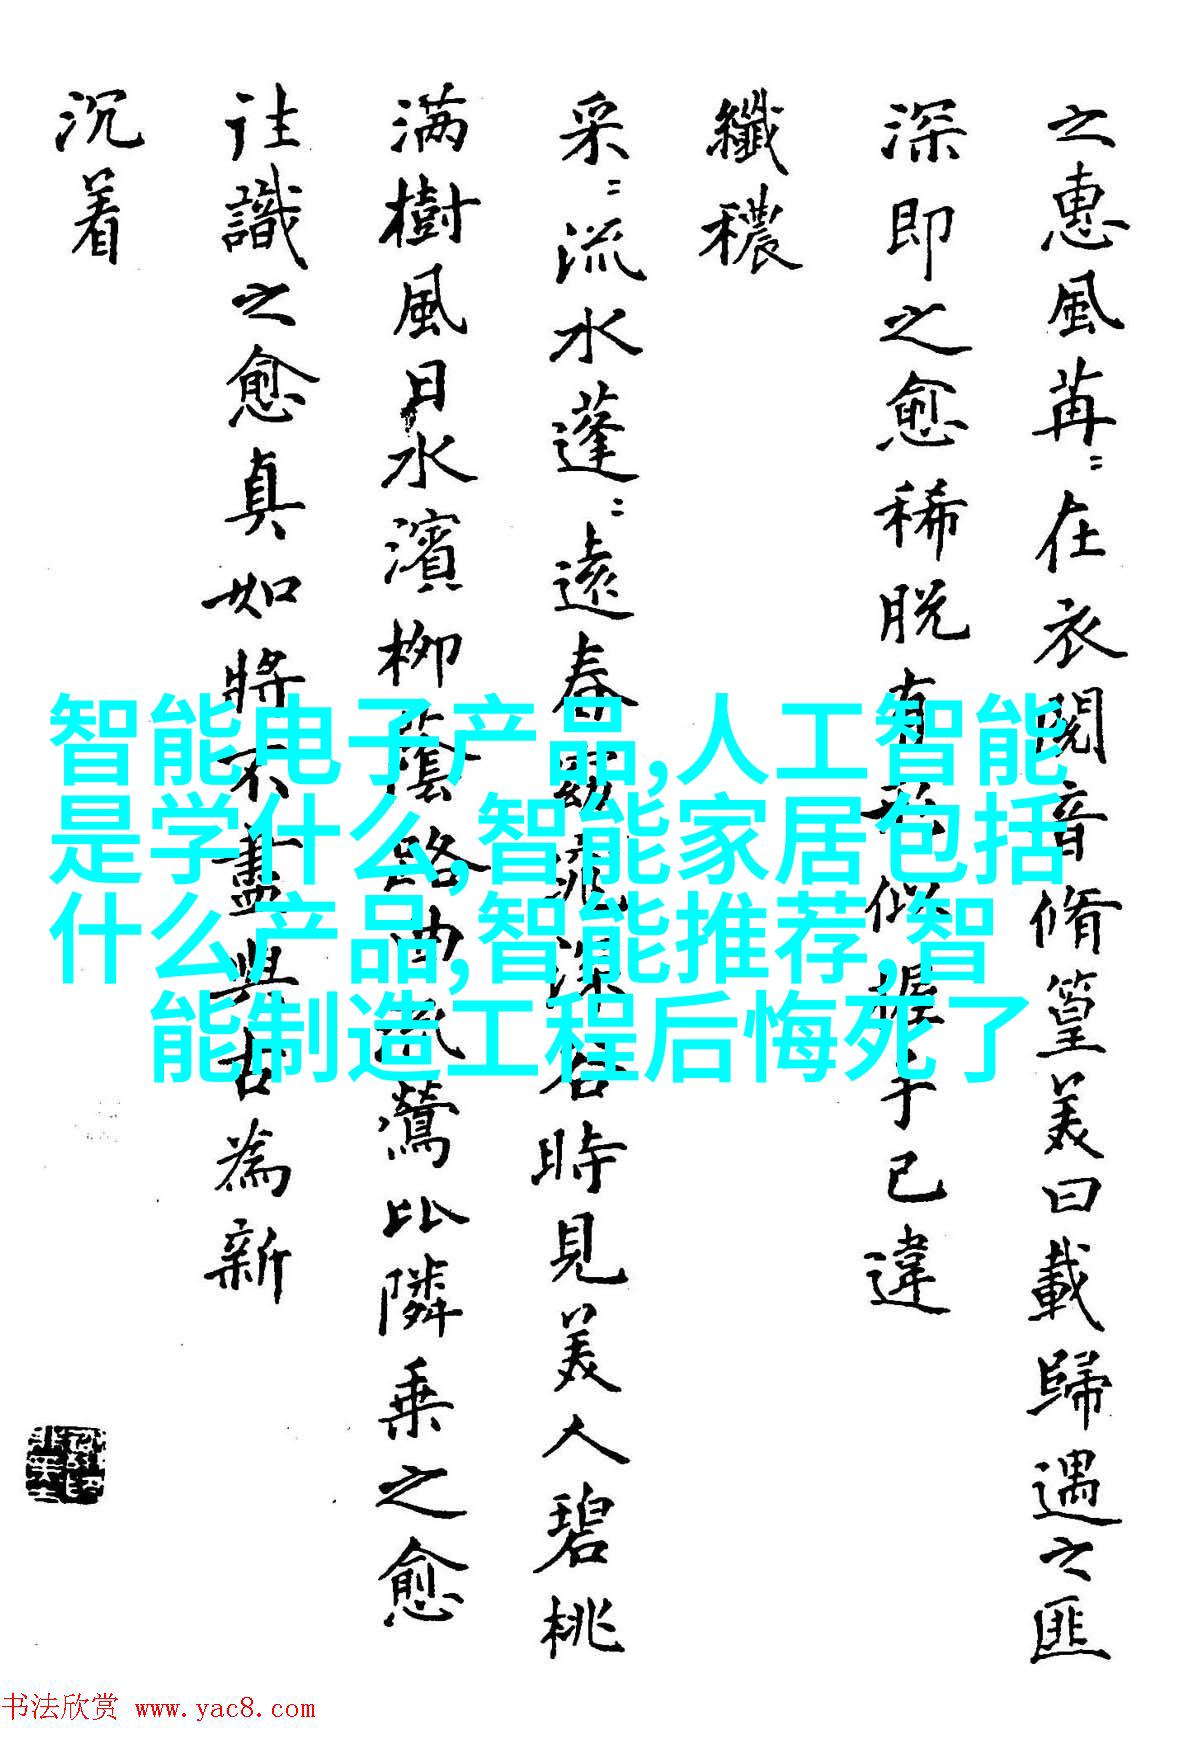 之惠風苒〻在衣閱音脩篁美曰載歸遇之匪
深即之愈稀脱有形似握手已違
纖穠
采〻流水蓬〻遠春窈窕深谷時見美人碧桃
满樹風日水濱柳蔭路曲流鶯比隣乗之愈
往識之愈真如將不盡與古為新
沉着
智能电子产品,人工智能
是学什么,智能家居包括
什么产品,智能推荐,智
能制造工程后悔死了
书法欣赏 www.yac8.com